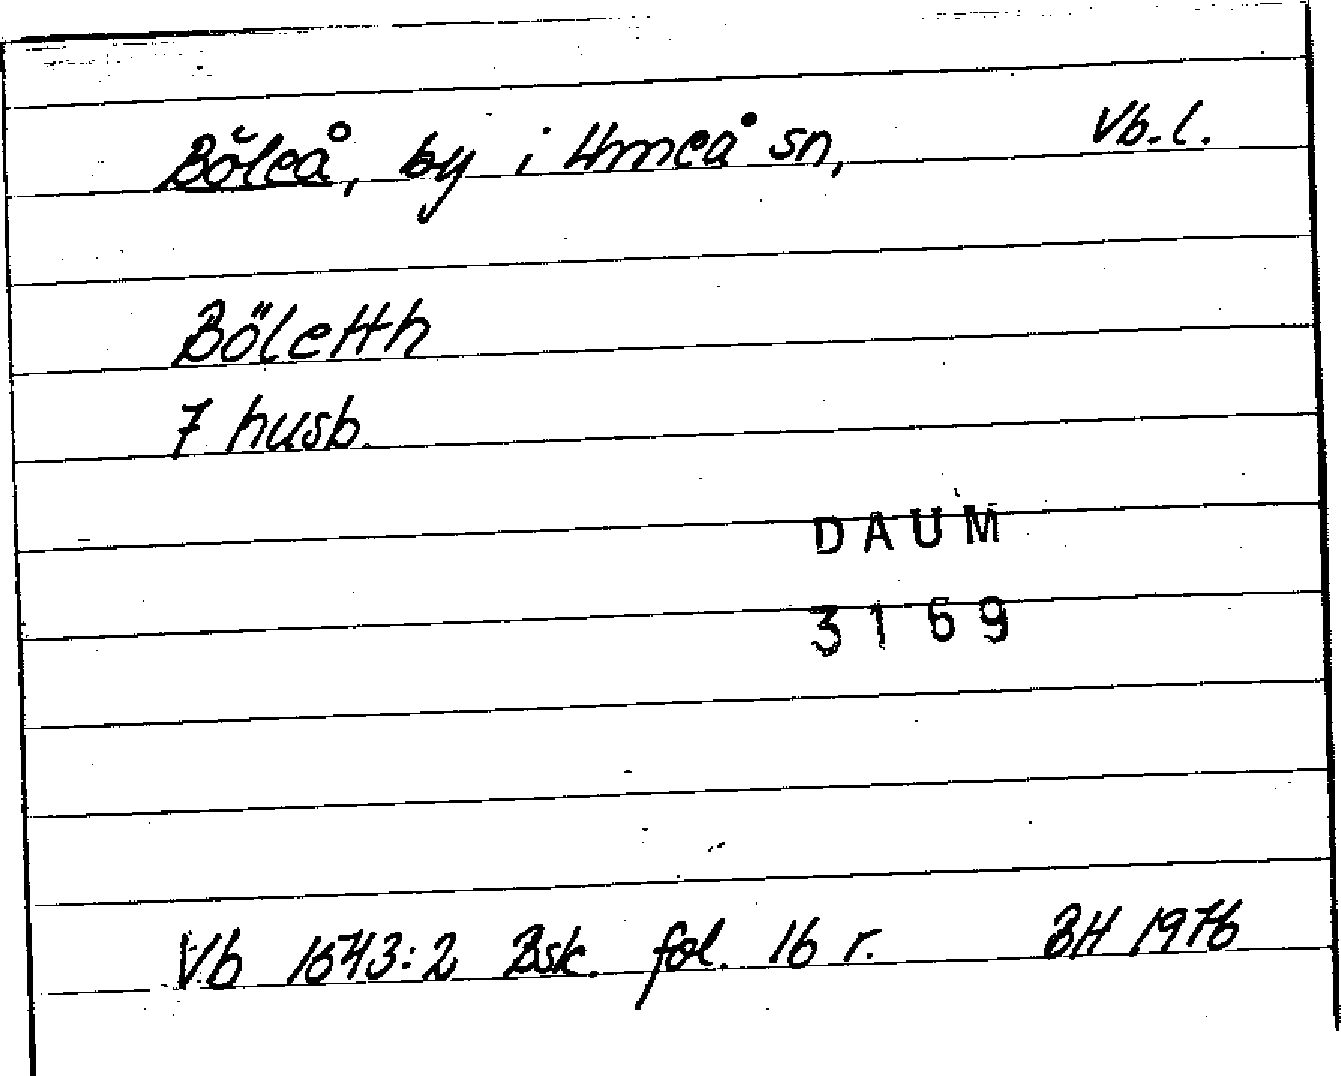 Böleå, by i Umeå sn, Vb.l.
Böletth
7 husb.
DAUM
3169
Vb 1543:2 Bsk. fol. 16 r. BH 1976